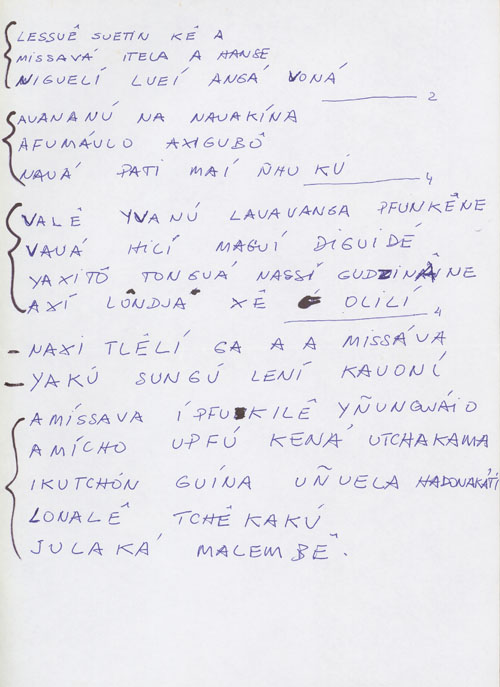 LESSUÊ SUETIN KÊ A
MISSAVÁ ITELA A HANSE
NIGUELÍ LUEÍ ANGÁ VONÁ
2
AUANANÚ NA NAUAKÍNA
AFUMÁULO AXIGUBÔ
NAUÁ PATI MAÍ ÑHU KÚ
4
VALÊ YVANÚ LAVAVANGA PFUNKÊNE
VAUÁ HILÍ MAGUÍ DIGUIDÉ
YAXITÔ TONGUÁ NASSÍ
AXÍ LÔNDJA XÊ OLILÍ
4
- NAXI TLÊLÍ GA A A MISSÁVA
- YAKÚ SUNGÚ LENÍ KAUONÍ
AMÍSSAVA ÍPFUKILÊ YÑUNGWÁIO
AMÍCHO UPFÚ KENÁ UTCHAKAMA
IKUTCHÓN GUÍNA UÑUELA HADONAKÁTI
LONALÊ TCHÊ KAKÚ
JULAKÁ MALEMBÊ.